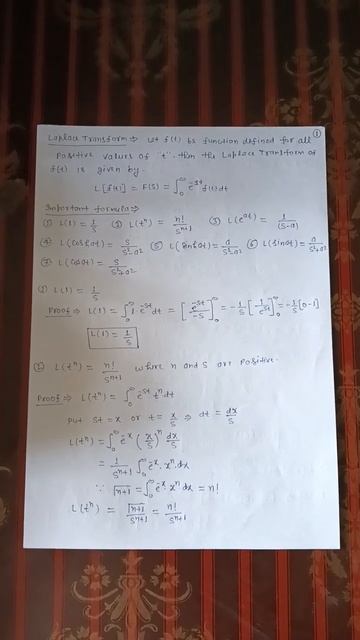 ①
Laplace Transform ⇒ Let f(t) be function defined for all
Positive values of "t". then the Laplace Transform of
f(t) is given by.
L[f(t)] = F(s) = ∫₀^∞ e^{-st} f(t) dt
Important formula ⇒
(1) L(1) = 1/s (2) L(tⁿ) = n!/s^{n+1} (3) L(e^{at}) = 1/(s-a)
(4) L(coshat) = s/(s²-a²) (5) L(sinhat) = a/(s²-a²) (6) L(sinat) = a/(s²+a²)
(7) L(cosat) = s/(s²+a²)
(1) L(1) = 1/s
Proof ⇒ L(1) = ∫₀^∞ 1·e^{-st} dt = [e^{-st}/-s]₀^∞ = -1/s [1/e^{st}]₀^∞ = -1/s [0-1]
L(1) = 1/s
(2) L(tⁿ) = n!/s^{n+1} where n and s are Positive.
Proof ⇒ L(tⁿ) = ∫₀^∞ e^{-st} tⁿ dt
Put st = x or t = x/s ⇒ dt = dx/s
L(tⁿ) = ∫₀^∞ e^{-x} (x/s)ⁿ dx/s
= 1/s^{n+1} ∫₀^∞ e^{-x}·xⁿ·dx
∵ Γ(n+1) = ∫₀^∞ e^{-x}·xⁿ dx = n!
L(tⁿ) = Γ(n+1)/s^{n+1} = n!/s^{n+1}